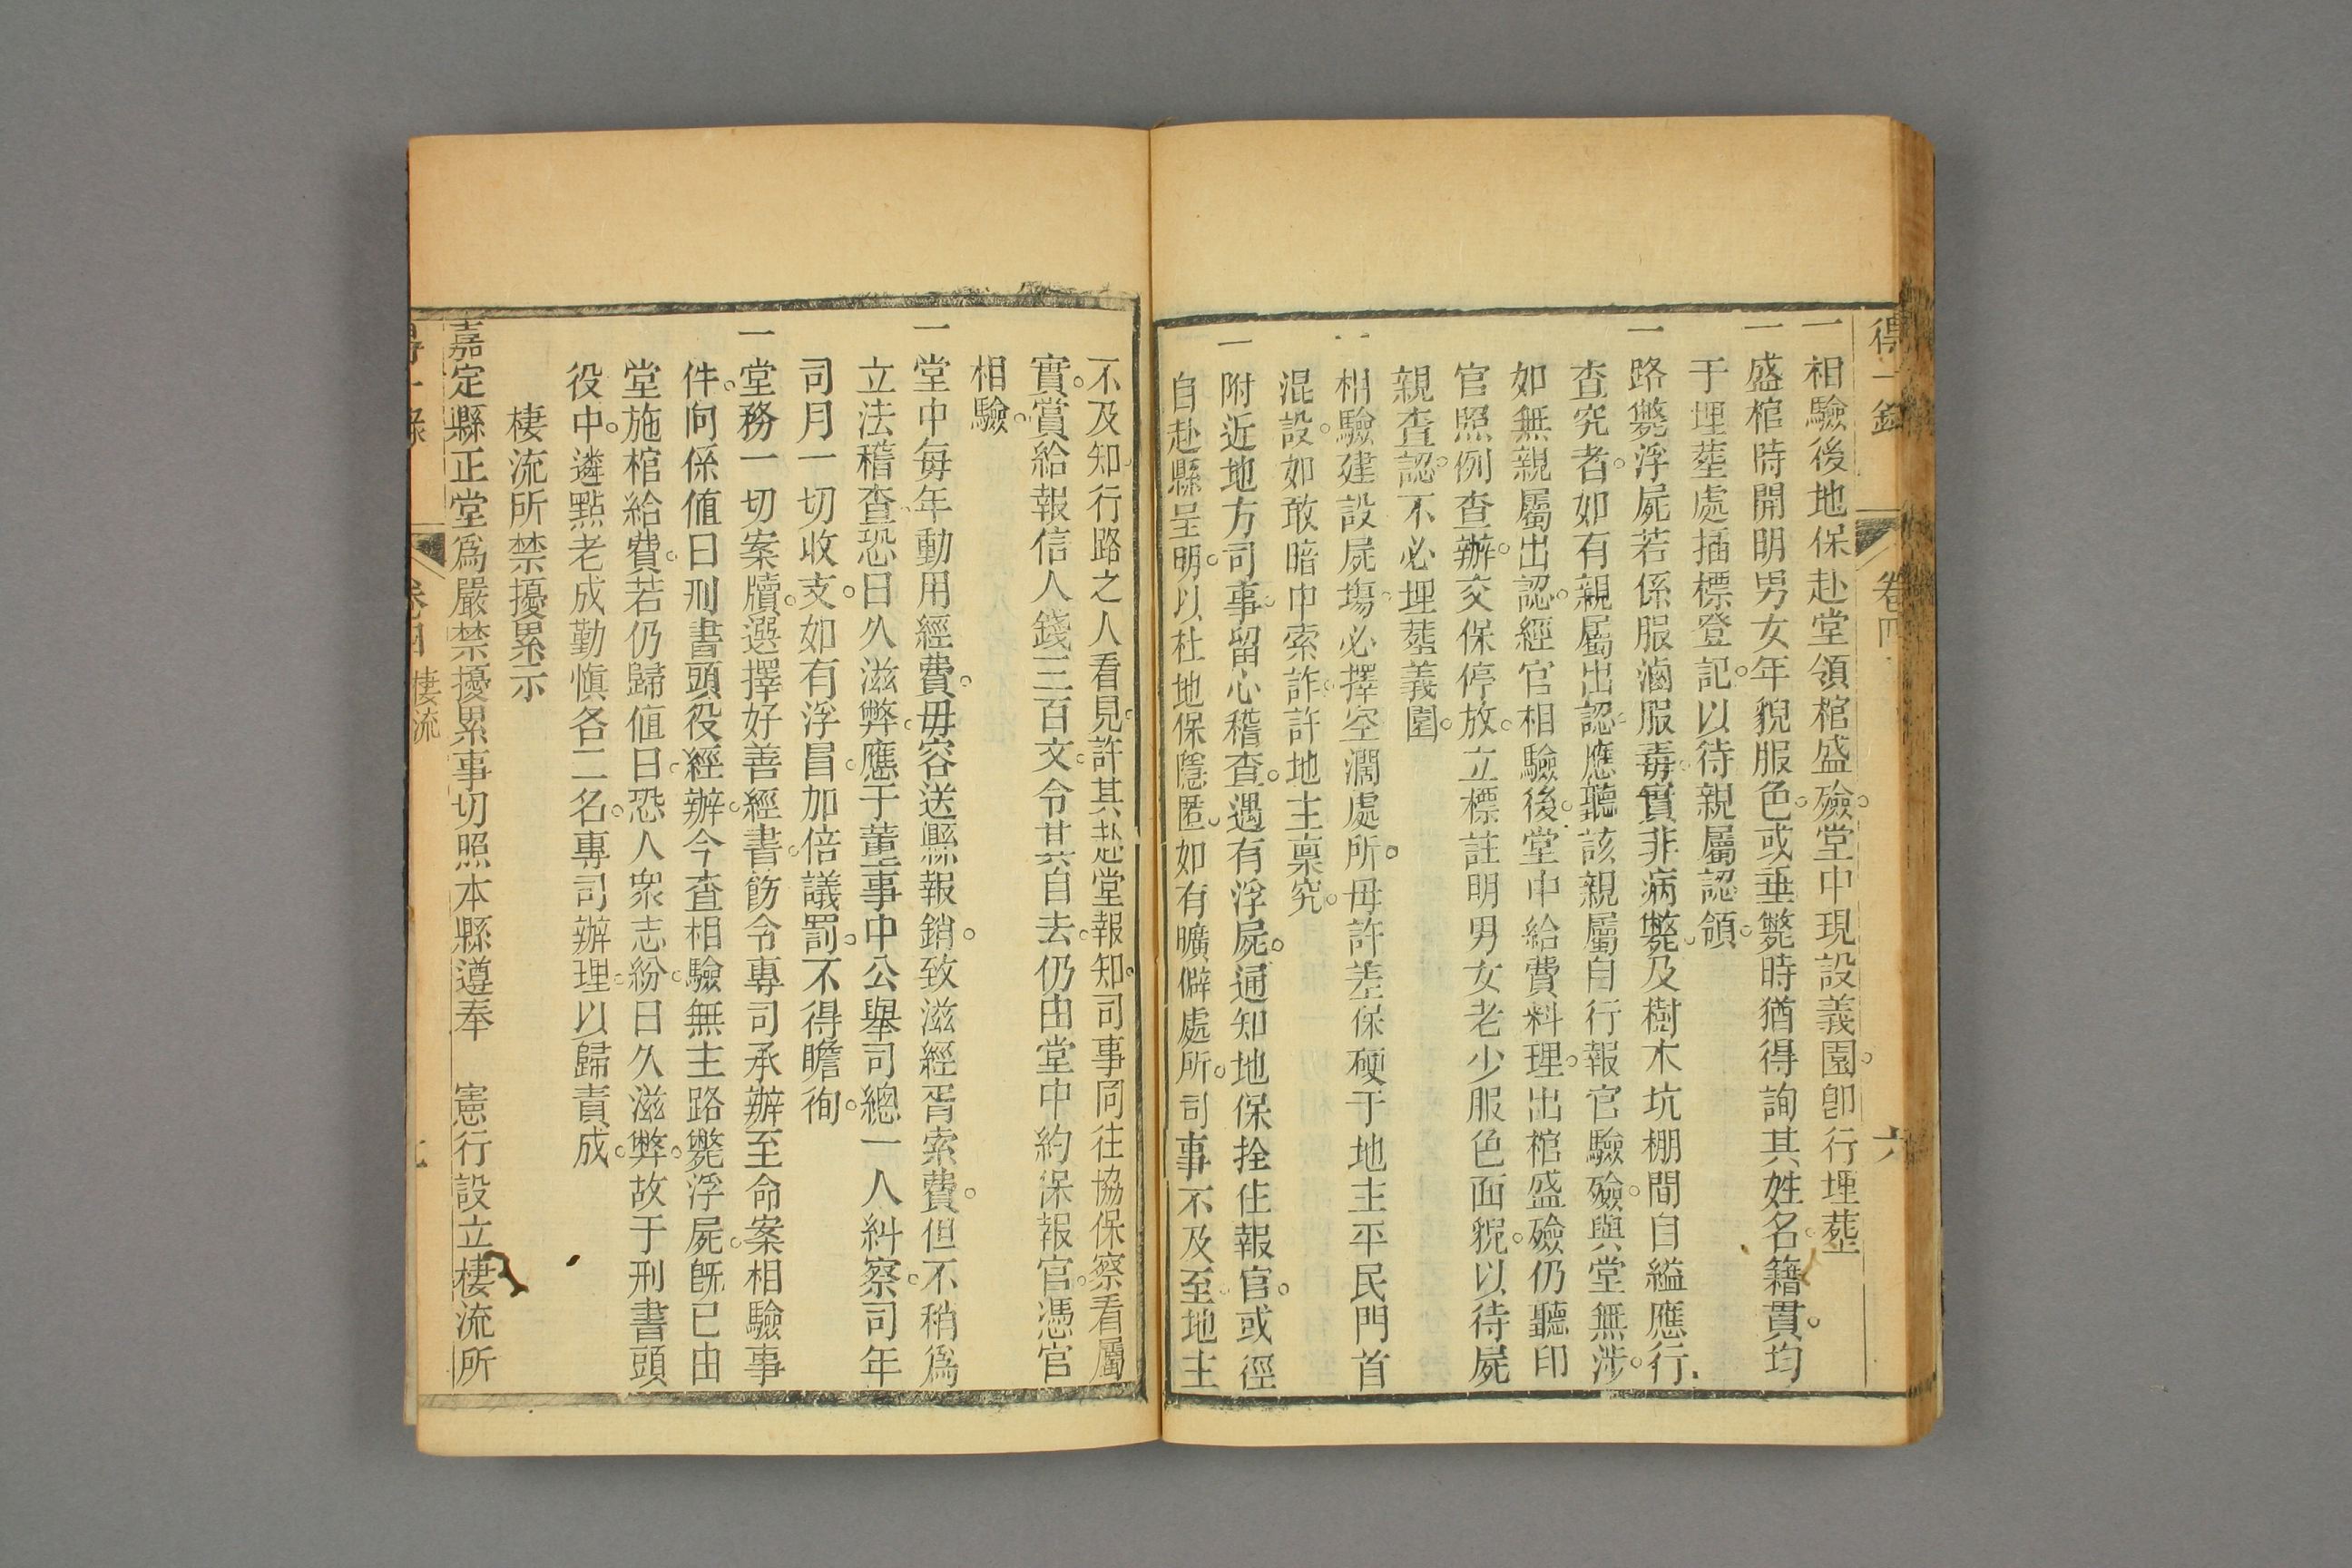 得一錄 卷四 六
一相驗後地保赴堂領棺盛殮。堂中現設義園。卽行埋塟
一盛棺時開明男女年貌服色。或垂斃時猶得詢其姓名。籍貫。均
于埋塟處插標登記。以待親屬認領。
一路斃浮屍若係服滷服毒。實非病斃。及樹木坑棚間自縊應行
查究者。如有親屬出認。應聽該親屬自行報官驗殮。與堂無涉。
如無親屬出認。經官相驗後。堂中給費料理。出棺盛殮仍聽印
官照例查辦。交保停放。立標註明男女老少服色面貌。以待屍
親查認。不必埋塟義園。
一相驗建設屍塲。必擇空濶處所。毋許差保硬于地主平民門首
混設。如敢暗中索詐。許地主稟究。
一附近地方司事。留心稽查。遇有浮屍。通知地保拴住報官。或徑
自赴縣呈明。以杜地保隱匿。如有曠僻處所。司事不及至。地主
不及知。行路之人看見。許其赴堂報知。司事同往協保察看屬
實。賞給報信人錢三百文。令其自去。仍由堂中約保報官。憑官
相驗。
一堂中每年動用經費。毋容送縣報銷。致滋經胥索費。但不稍爲
立法稽查。恐日久滋弊。應于董事中公舉司總一人糾察。司年
司月一切收支。如有浮冒。加倍議罰。不得瞻徇。
一堂務一切案牘。選擇好善經書。飭令專司承辦至命案相驗事
件。向係值日刑書頭役經辦。今查相驗無主路斃浮屍。旣已由
堂施棺給費。若仍歸值日。恐人衆志紛。日久滋弊。故于刑書頭
役中。遴點老成勤愼各二名。專司辦理。以歸責成。
棲流所禁擾累示
嘉定縣正堂爲嚴禁擾累事切照本縣遵奉　憲行設立棲流所
卷四 棲流